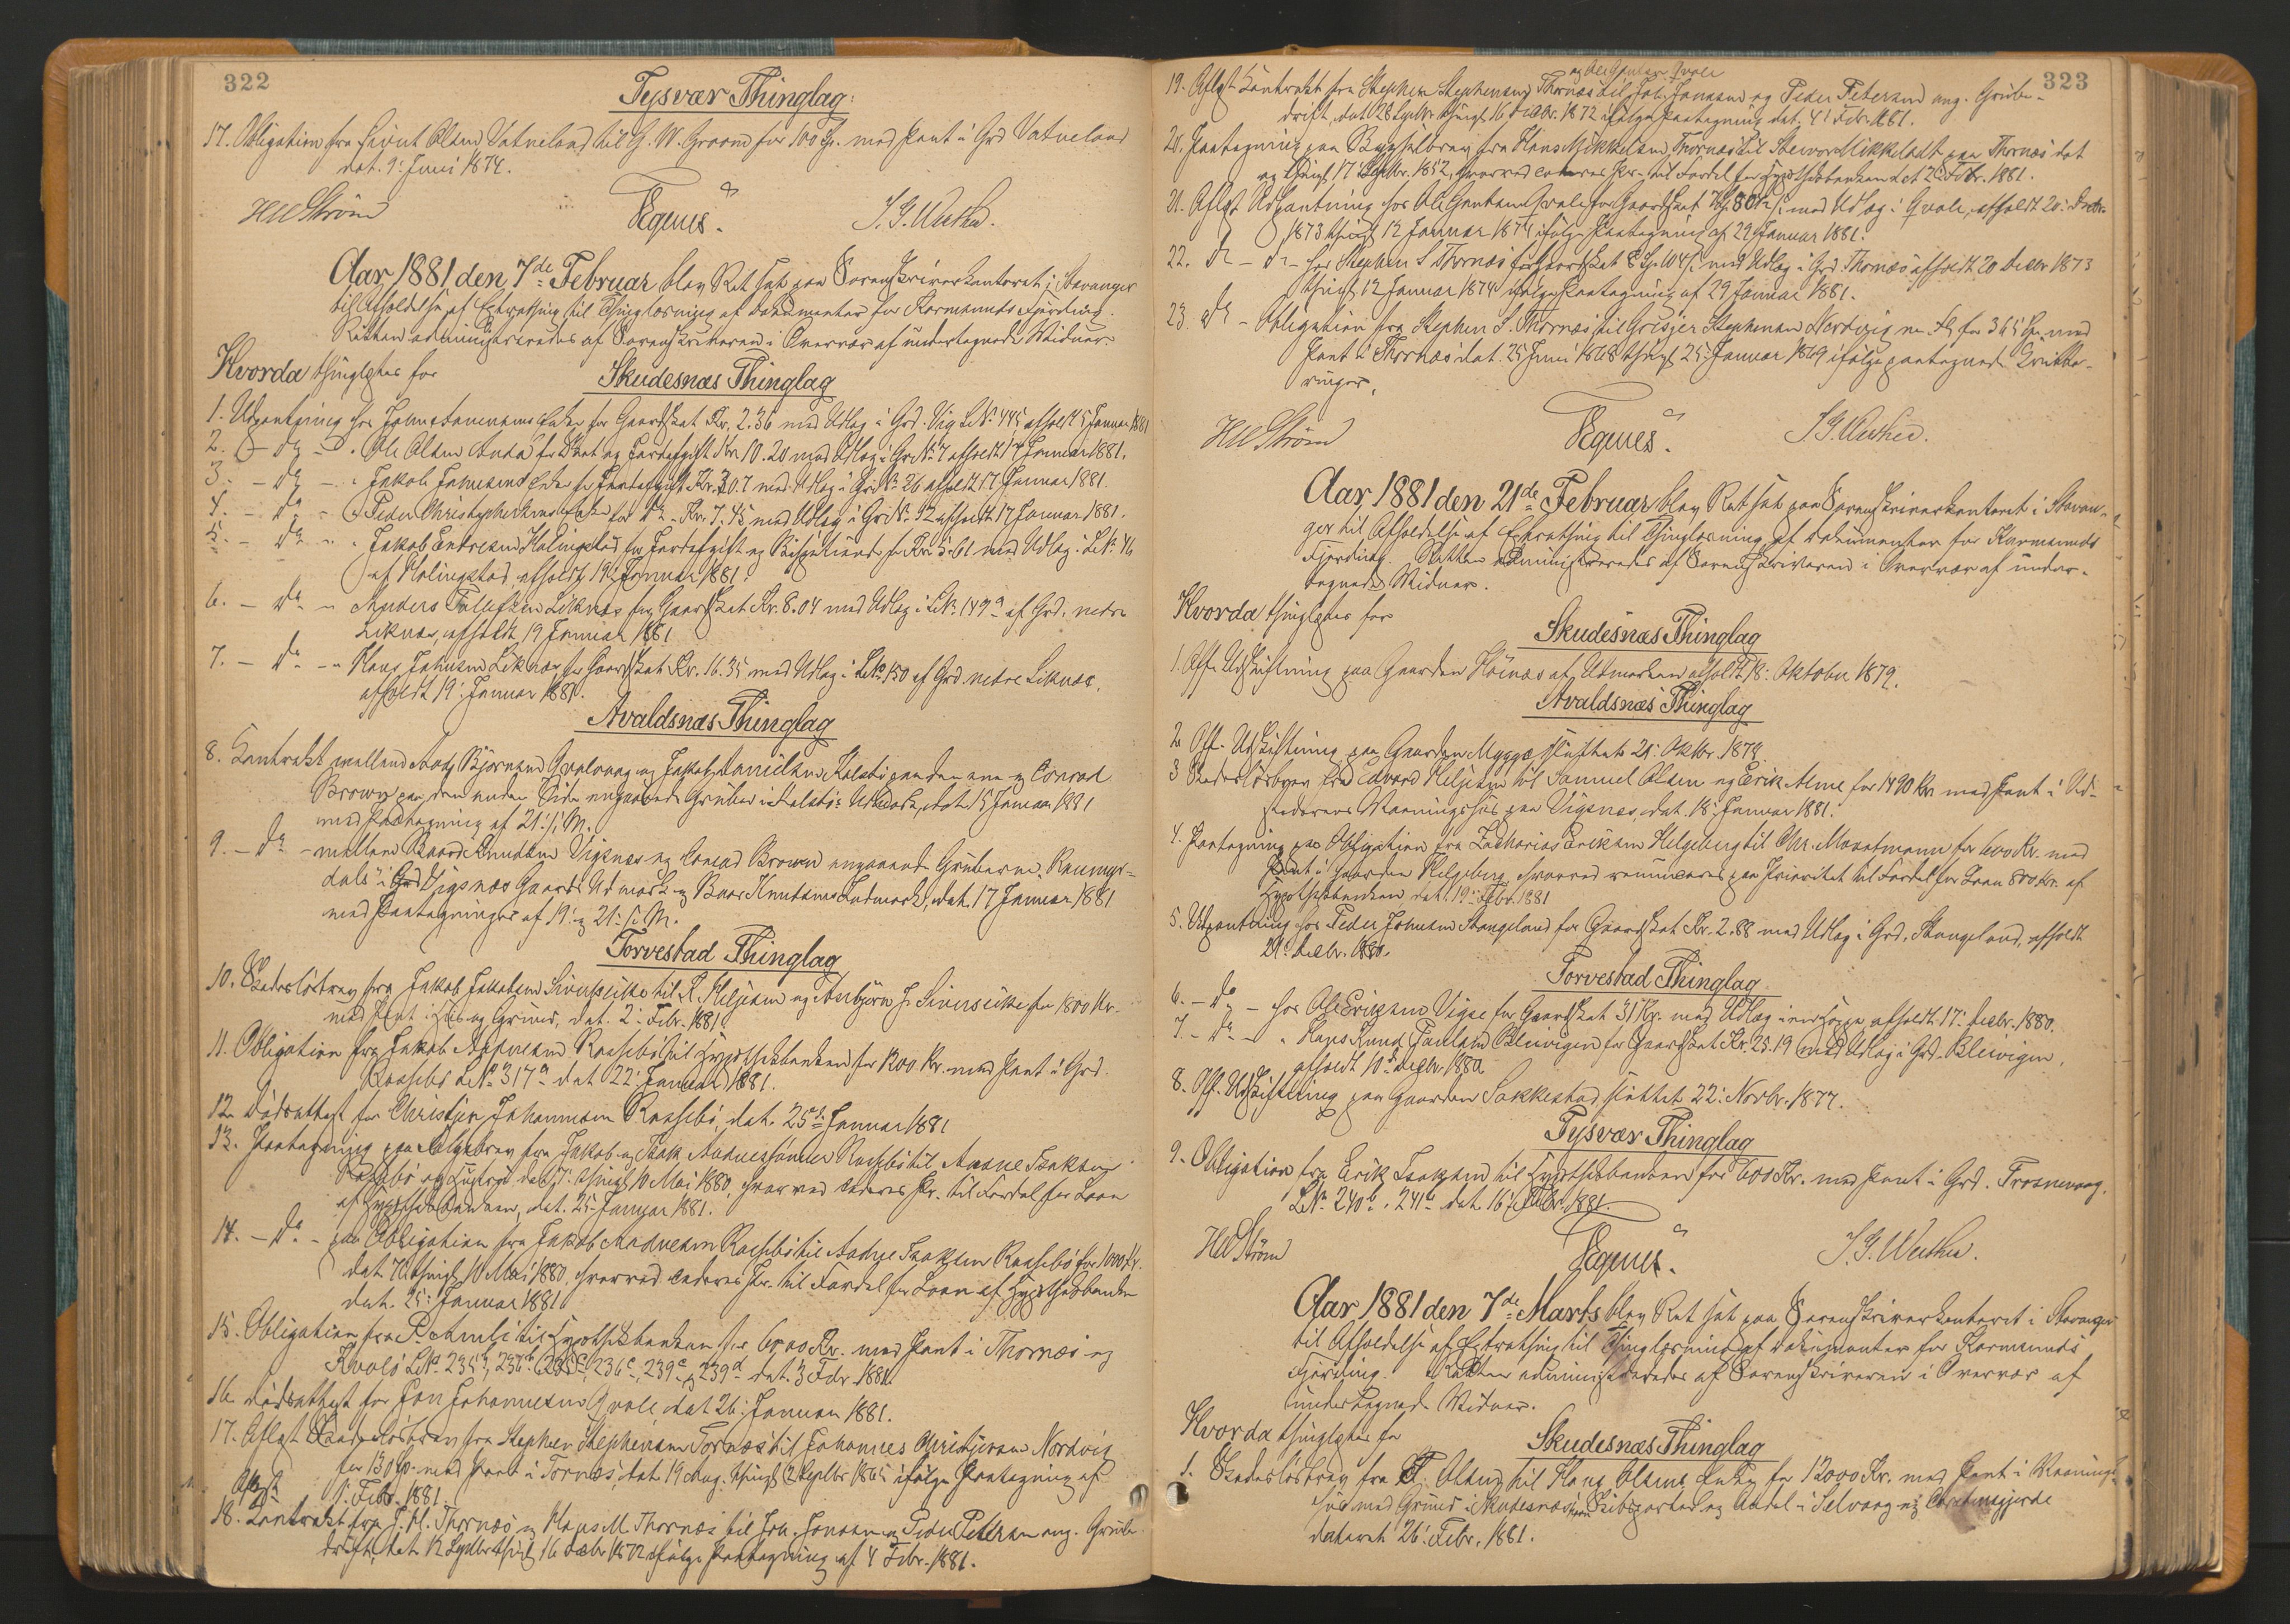 322
Tysvær Thinglag.
17. Obligation fra Sivert Olsen Vatneland til G. W. Groom for 100 Sp. med Pant i Grd Vatneland
dat. 9: Juni 1874.
HW Strøm Eques. S. G. Wuther.
Aar 1881 den 7de Februar blev Ret sat paa Sorenskriverkontoret i Stavanger
til Afholdelse af Extrathing til Thinglæsning af Dokumenter for Karmsunds Fjerding.
Retten administreredes af Sorenskriveren i Overvær af undertegnede Vidner.
Hvorda thinglystes for
Skudesnæs Thinglag
1. Udpantning hos Enke for Gaardskat Kr. 2.36 med Udlæg i Grd. Vig LNo 445 afholdt 5 Januar 1881
2. - do - " Ole Olsen for Skat og Jordafgift Kr. 10.20 med Udlæg i Gr.No 7 afholdt 17 Januar 1881.
3. - do - " Jakob Enke for Jordafgift Kr. 30.7 med Udlæg i Gr.No 26 afholdt 17 Januar 1881.
4. - do - " Peder Christophersens Enke for do - Kr. 7.45 med Udlæg i Gr.No 52 afholdt 17 Januar 1881.
5. - do - " Jakob Endresen Halingstad for Jordafgift og for Kr. 5.61 med Udlæg i LNo 46
af Halingstad, afholdt 19 Januar 1881.
6. - do - " Anders Liknæs for Gaardskat Kr. 8.04 med Udlæg i LNo 147a af Grd. nedre
Liknæs, afholdt 19 Januar 1881
7. - do - " Hans Johnsen Liknæs for Gaardskat Kr. 16.35 med Udlæg i LNo 150 af Grd. nedre Liknæs,
afholdt 19: Januar 1881.
Avaldsnæs Thinglag
8. Kontrakt mellem Aad Bjørnsen Qvalevaag og Jakob Danielsen Kalstø paa den ene og Conrad
Brown paa den anden Side angaaende Gruber i Kalstø: Udmark, dat. 15 Januar 1881
med Paategning af 21: s. M.
9. - do - mellem Baard Knudsen Vigsnæs og Conrad Brown angaaende Gruberne
i Grd Vigsnæs Gaards Udmark og Baar Knutsens Udmark, dat. 17 Januar 1881
med Paategninger af 19: og 21: s. M.
Torvestad Thinglag
10. Skadesløsbrev fra Jakob Jakobsen til R. Heljesen og Asbjørn J. for 1800 Kr.
med Pant i Hus og Grund, dat. 2: Febr. 1881
11. Obligation fra Jakob Andresen Rossebø til Hypothekbanken for 1300 Kr. med Pant i Grd.
Rossebø LNo 317a dat 22: Januar 1881.
12. Dødsattest for Christjen Johannesen Rossebø, dat. 25de Januar 1881
13. Paategning paa fra Jakob og Isak Rossebø til Isaksen
Rossebø og dat 7: thingl. 10 Mai 1880, hvorved cederes Pr. til Fordel for Laan
af Hypothekbanken, dat. 25: Januar 1881.
14. - do - paa Obligation fra Jakob Andresen Rossebø til Isaksen Rossebø for 1000 Kr.
dat. 7: thingl. 10 Mai 1880, hvorved cederes Pr. til Fordel for Laan af Hypothekbanken
dat. 25: Januar 1881
15. Obligation fra P. til Hypothekbanken for 6000 Kr. med Pant i Thornæs og
Kvalø LNo 235b, 236b, 236c, 239c og 239d dat. 3 Febr. 1881.
16. Dødsattest for Jon Johannesen Qvale, dat 26: Januar 1881.
17. Aflyst Skadesløsbrev fra Stephen Stephensen Tornæs til Johannes Christjensen Nordvig
for 130 Sp. med Pant i Tornæs, dat. 19 Aug. thingl. 2 Septbr 1865 ifølge Paategning af
1: Febr. 1881.
18. Aflyst Kontrakt fra Thornæs og Hans M. Thornæs til Joh. Jonsen og Peder Petersen ang. Grube-
drift, dat. 12 Septbr thingl. 16 Decbr 1872 ifølge Paategning af 4 Febr. 1881.
323
og Ole Qvale
19. Aflyst Kontrakt fra Stephen Stephensen Thornæs til Joh. Jonsen og Peder Petersen ang. Grube-
drift, dat 28 Septbr thingl. 16 Decbr. 1872 ifølge Paategning dat. 4 Febr. 1881.
20. Paategning paa Bygselbrev fra Hans Mikkelsen Thornæs til Mikkelsdt paa Thornæs dat
og thingl. 17 Septbr. 1852, hvorved cederes Pr. til Fordel for Hypothekbanken dat 2: Febr. 1881.
21. Aflyst Udpantning hos Ole Qvale for Gaardskat med Udlæg i Qvale, afholdt 20: Decbr.
1873 thingl. 12 Januar 1874 ifølge Paategning af 29 Januar 1881.
22. do - do - hos Stephen S Thornæs for Gaardskat med Udlæg i Grd. Thornæs afholdt 20 Decbr 1873
thingl. 12 Januar 1874 ifølge Paategning af 29 Januar 1881.
23. do - Obligation fra Stephen S. Thornæs til Stephensen Nordvig for 365 Sp. med
Pant i Thornæs dat. 25 Juni 1868 thingl. 25: Januar 1869 ifølge paategnede Qvitte-
ringer.
HW Strøm Eques. S. G. Wuther.
Aar 1881 den 21de Februar blev Ret sat paa Sorenskriverkontoret i Stavan-
ger til Afholdelse af Extrathing til Thinglæsning af Dokumenter for Karmsunds
Fjerding. Retten administreredes af Sorenskriveren i Overvær af under-
tegnede Vidner.
Hvorda thinglystes for
Skudesnæs Thinglag
1. Off. Udskiftning paa Gaarden Hoinæs af Udmarken afholdt 18: Oktober 1879.
Avaldsnæs Thinglag
2 Off. Udskiftning paa Gaarden Mygge sluttet 21: Oktbr. 1878
3 Skadesløsbrev fra Edvard Heljesen til Samuel Olsen og Erik Alme for 1490 Kr. med Pant i Ud-
stederens Vaaningshus paa Vigsnæs, dat. 18: Januar 1881.
4. Paategning paa Obligation fra Zacharias Eriksen Helgeberg til Chr. for 600 Kr. med
Pant i Gaarden Helgeberg hvorved renunceres paa Prioritet til Fordel for Laan 800 Kr. af
Hypothekbanken, dat. 19: Febr. 1881
5. Udpantning hos Peder Johnsen Stangeland for Gaardskat Kr. 2.88 med Udlæg i Grd. Stangeland, afholdt
21: Decbr. 1880.
Torvestad Thinglag
6. - do - hos Ole Eriksen Vigse for Gaardskat 31 Kr. med Udlæg i en afholdt 17: Decbr. 1880.
7. - do - " Hans Knud Paulsen Bleivigen for Gaardskat Kr. 25.19 med Udlæg i Grd. Bleivigen,
afholdt 10: Decbr. 1880
8. Off. Udskiftning paa Gaarden Sakkestad sluttet 22: Novbr. 1877.
Tysvær Thinglag
9. Obligation fra Erik Isaksen til Hypothekbanken for 600 Kr. med Pant i Grd. Frosnevaag,
LNo 240b, 241b dat. 16 Febr. 1881.
HW Strøm Eques. S. G. Wuther.
Aar 1881 den 7de Marts blev Ret sat paa Sorenskriverkontoret i Stavanger
til Afholdelse af Extrathing til Thinglæsning af Dokumenter for Karmsunds
Fjerding. Retten administreredes af Sorenskriveren i Overvær af
undertegnede Vidner.
Hvorda thinglystes for
Skudesnæs Thinglag
1. Skadesløsbrev fra Olsen til Hans Olsens Enke for 12000 Kr. med Pant i Vaanings-
hus med Grund i Skudesnæshavn, og Andel i Salvaag og
dateret 26: Febr. 1881.